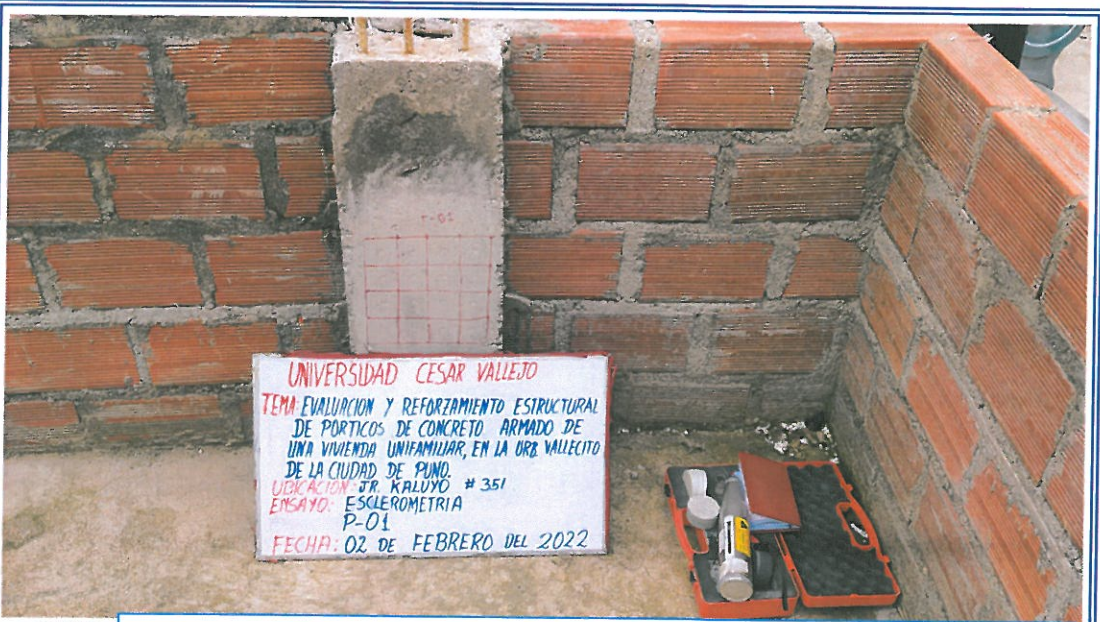 T-01
UNIVERSIDAD CESAR VALLEJO
TEMA: EVALUACION Y REFORZAMIENTO ESTRUCTURAL
DE PORTICOS DE CONCRETO ARMADO DE
UNA VIVIENDA UNIFAMILIAR, EN LA URB. VALLECITO
DE LA CIUDAD DE PUNO.
UBICACION: JR. KALUYO # 351
ENSAYO: ESCLEROMETRIA
P-01
FECHA: 02 DE FEBRERO DEL 2022